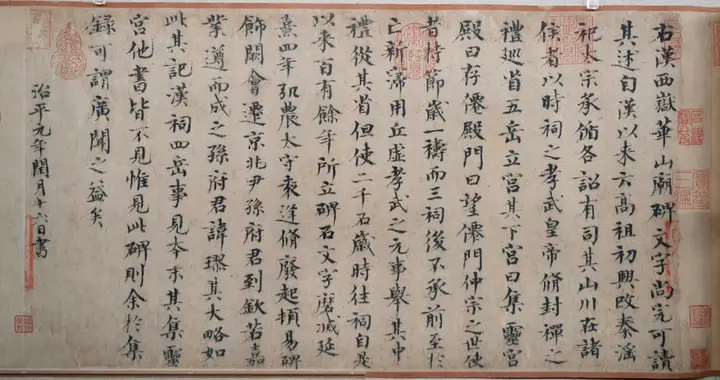 右漢西嶽華山廟碑文字尚完可讀
其述自漢以來云高祖初興改秦淫
祀太宗承循各詔有司其山川在諸
侯者以時祠之孝武皇帝脩封禪之
禮巡省五岳立宮其下宮曰集靈宮
殿曰存僊殿門曰望僊門仲宗之世使
者持節歲一禱而三祠後不承前至於
亡新寖用丘虛孝武之元事舉其中
禮從其省但使二千石歲時往祠自是
以來百有餘年所立碑石文字磨滅延
熹四年弘農太守袁逢脩廢起頓易碑
飾闕會遷京兆尹孫府君到欽若嘉
業遵而成之孫府君諱璆其大略如
此其記漢祠四岳事見本末其集靈
宮他書皆不見惟見此碑則余於集
錄可謂廣聞之益矣
治平元年閏月十六日書